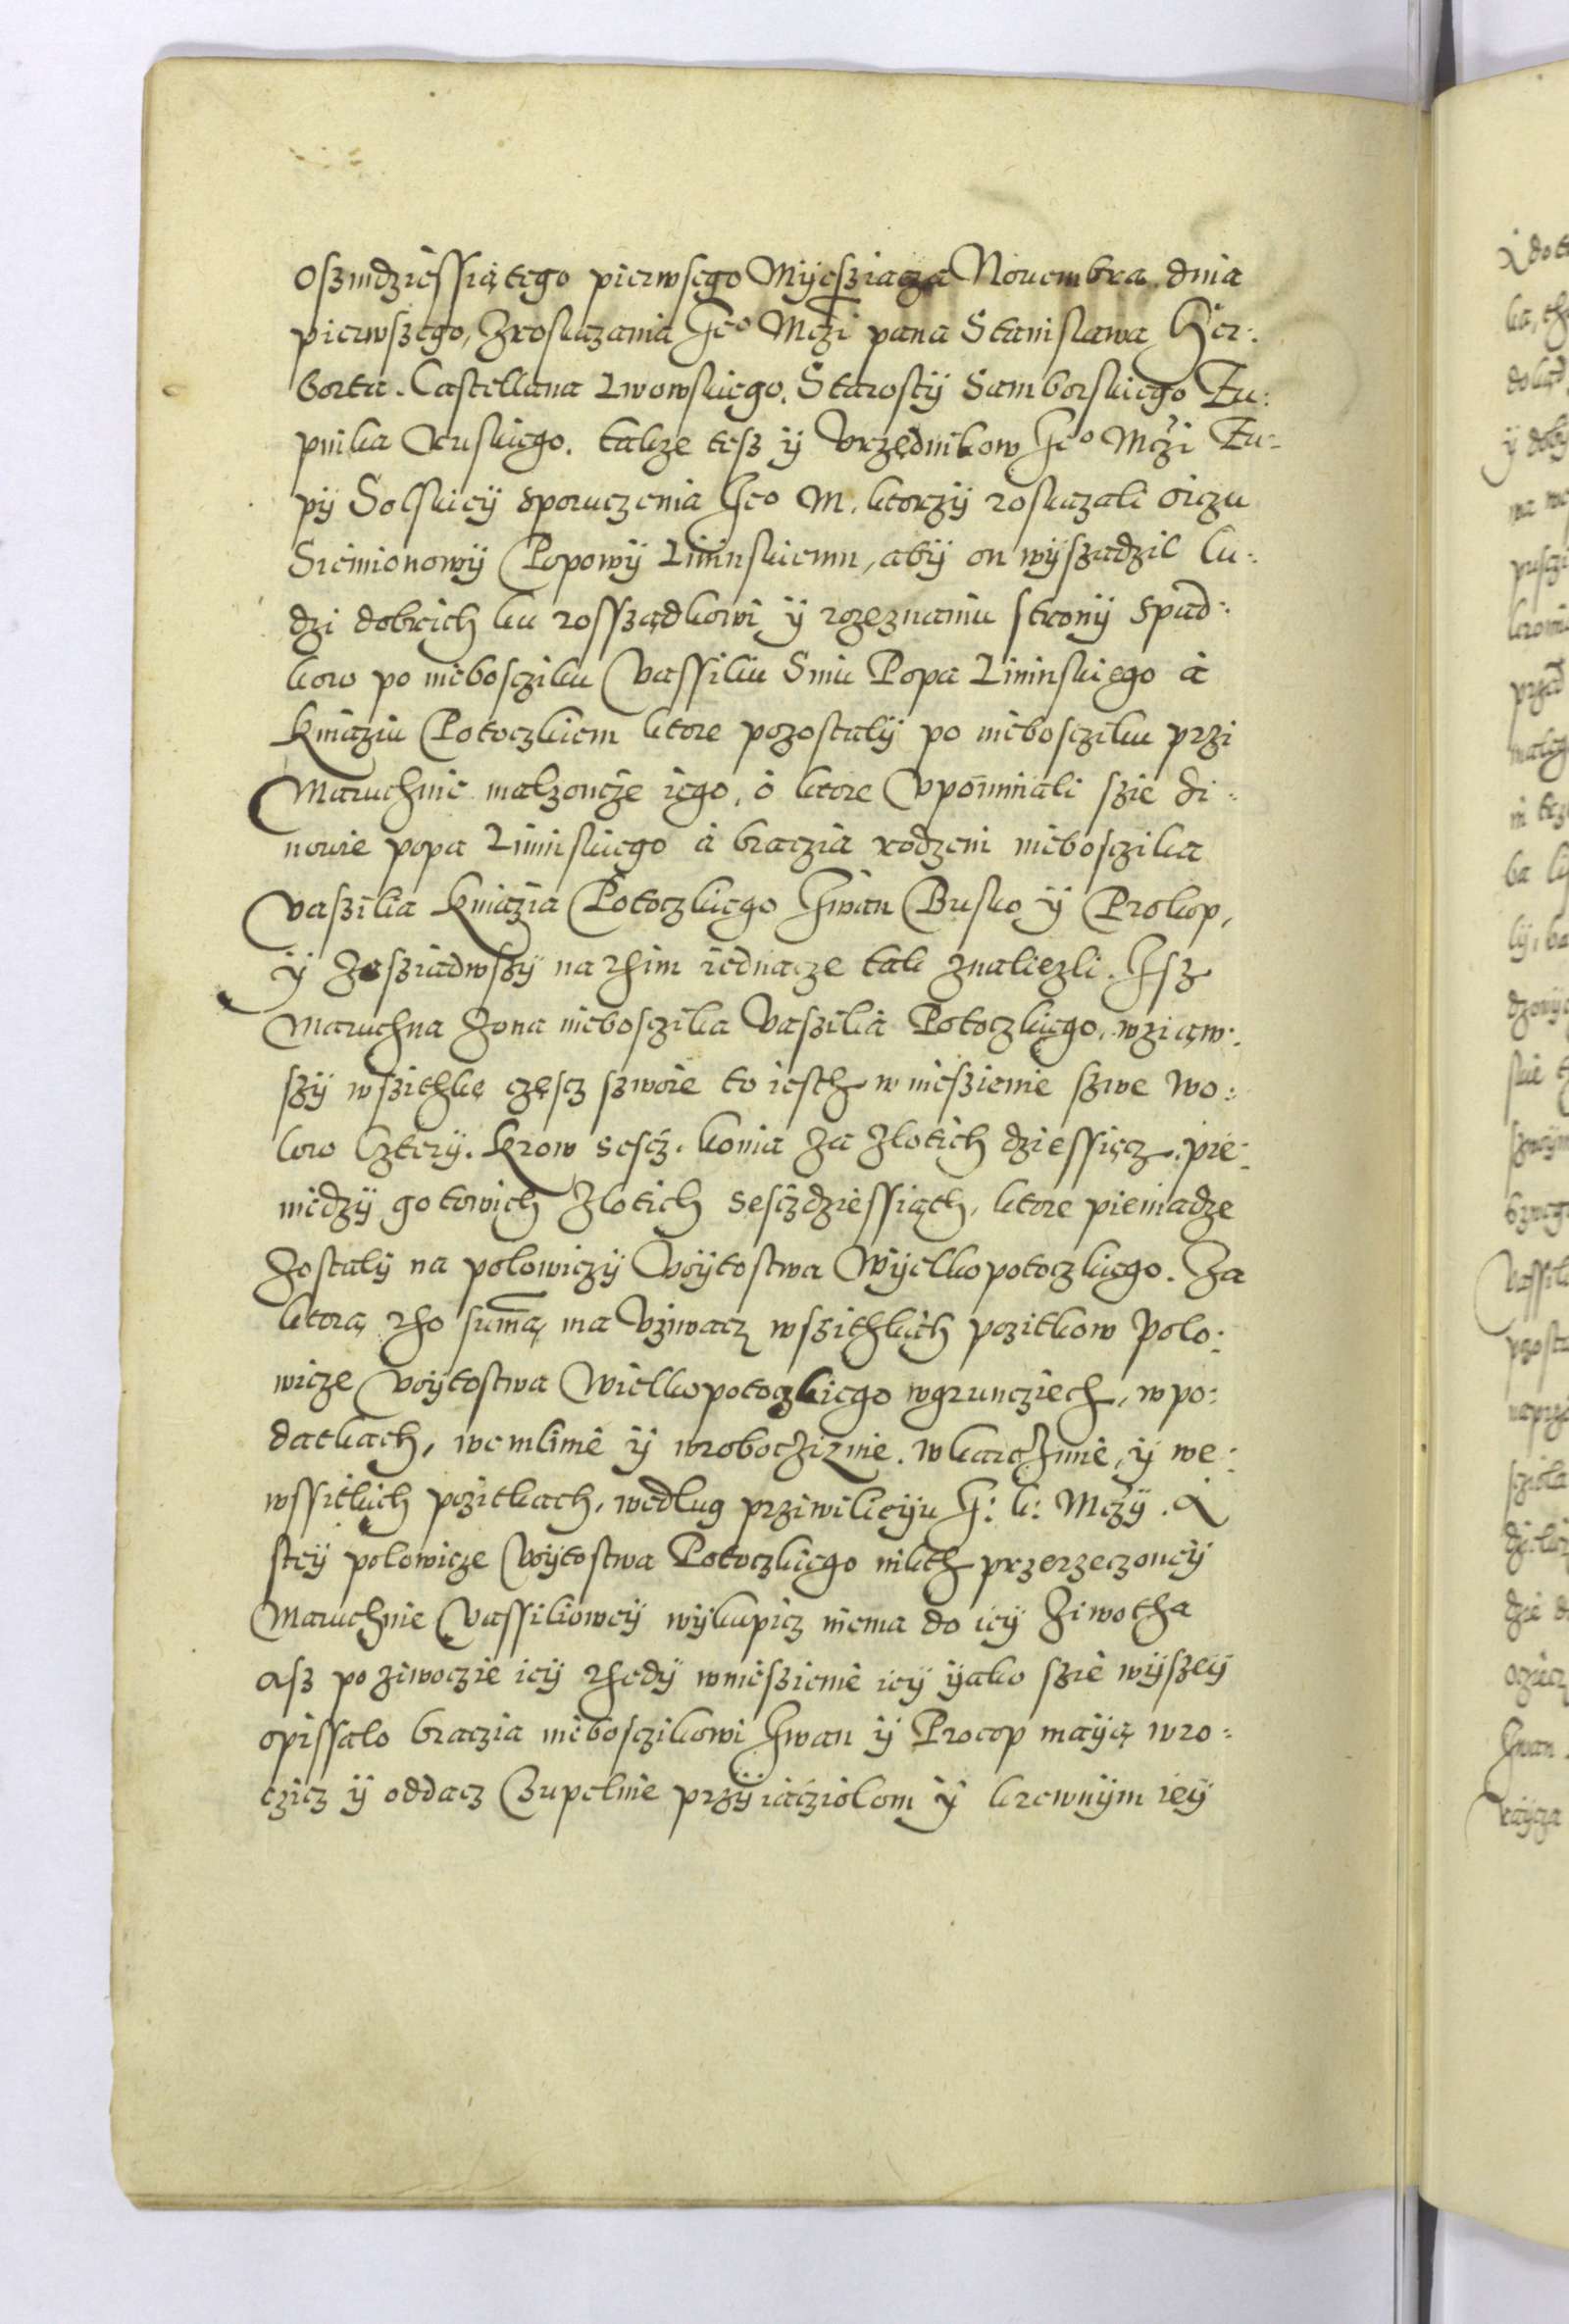 oszmdziessiątego pierwsego Myesziacza Nouembra. dnia
pierwszego, Zroskazania Jeo Mczi pana Stanislawa Her:
borta. Castellana Lwowskiego. Starosty Samborskiego Zu:
pnika Ruskiego. takze tesz y Vrzędnikow Jeo Mczi Zu:
py Solskiey sporuczenia Jeo M. ktorzy roskazali oiczu
Siemionowy Popowy Lininskiemu, aby on wyszadzil lu:
dzi dobrich ku rossządkowi y rozeznaniu strony spad:
kow po nieboscziku Vassiliu Sniu Popa Lininskiego á
Kniaziu Potoczkiem ktore pozostaly po nieboscziku przi
Maruchnie malzoncze iego, o ktore Vpominali szie Si:
nowie popa Lininskiego á braczia rodzeni nieboszika
Vaszilia Kniazia Potoczkiego Iwan Busko y Prokop,
y Zesziadwszy na thim iednacze tak znalezli. Isz
Maruchna Zona niebosczika Vaszilia Potoczkiego. wziąw:
szy wszithkę częscz szwoie to iesth wnieszienie szwe wo:
low Cztery. Krow sescz. konia za Zlotich dziessięcz. pie:
niędzy gotowich Zlotich sesczdziessiąth, ktore pieniadze
Zostaly na polowiczy Woytostwa Wyelkopotoczkiego. Za
ktorą tho sumą ma Vziwacz wszithkich pozitkow Polo:
wicze Woytostwa Wielkopotoczkiego wgrunczieth, w po:
datkach, wemlinie y wrobocziznie. wkarczmie, y we:
wssitkich pozitkach, wedlug prziwilieyu J: k: Mczy. A
stey polowicze Woytostwa Potoczkiego nikth przerzeczoney
Maruchnie Vassiliowey wykupicz niema do iey Ziwotha
asz po ziwoczie iey thedy wnieszienie iey yako szie wyszey
opissalo braczia nieboszikowi Iwan y Procop mayą wro:
czicz y oddacz Zupelnie przyiacziolom y krewnym iey